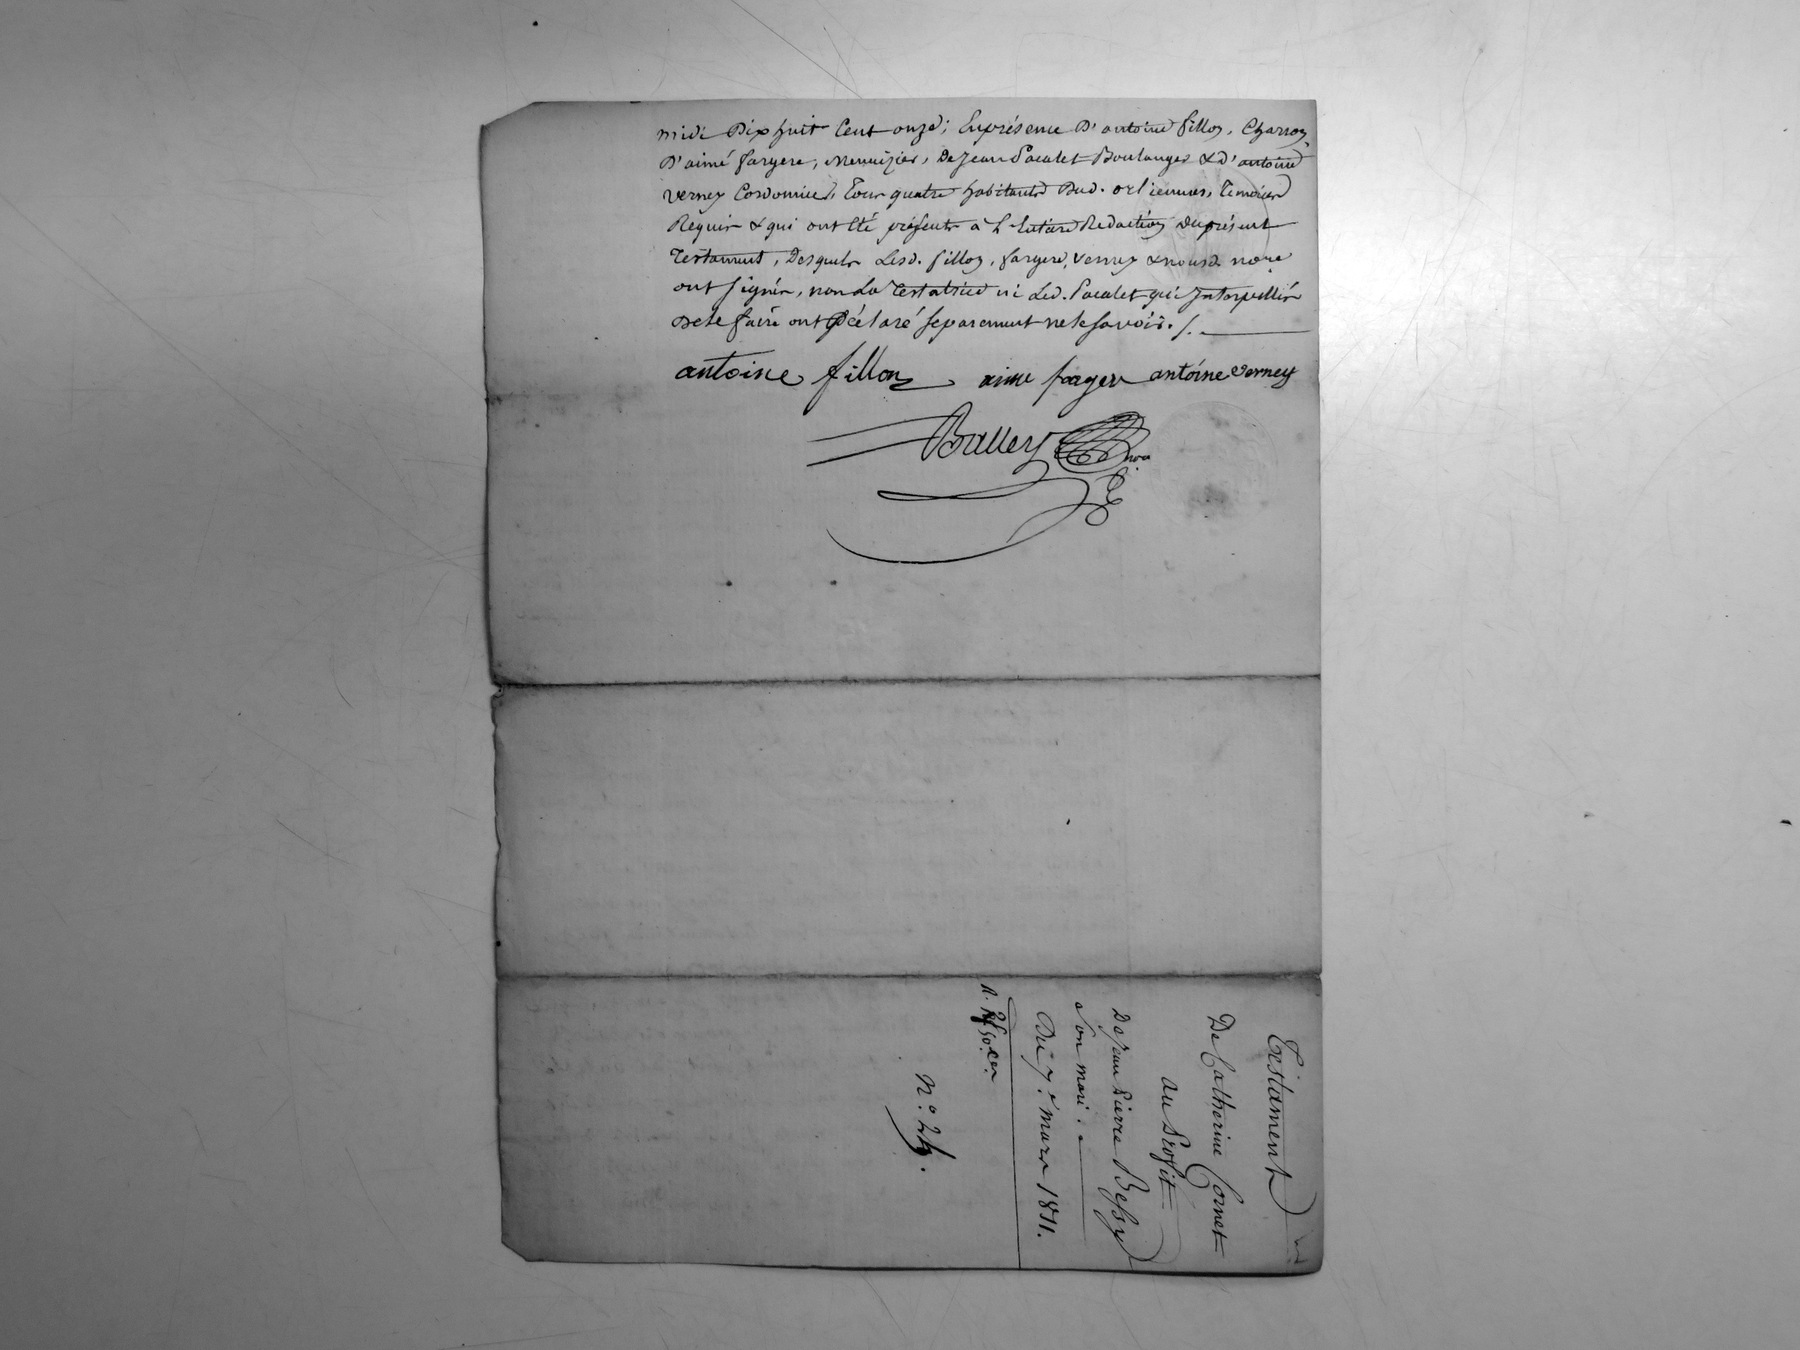 midi Dix huit Cent onze; En présence D'antoine fillon, Charron,
D'aimé fargere, Menuizier, De Jean Pacalet Boulanger & d'antoine
verney Cordonnier, Tous quatre habitants Dud. orlienas, Temoins
Requis & qui ont Eté présents à L'Entiere Redaction Duprésent
Testament, Desquels Lesd. fillon, fargere, verney & nousd. nore
ont signés, non La Testatrice ni Led. Pacalet qui Interpellés
De le faire ont Déclaré separement ne le savoir. /.
antoine fillon aime fargere antoine verney
Ballery nore
Testament
De Catherine Cornet
au Profit
De Jean Pierre Bessy
Son mari.
Du 7. mars 1811.
n.o 24.